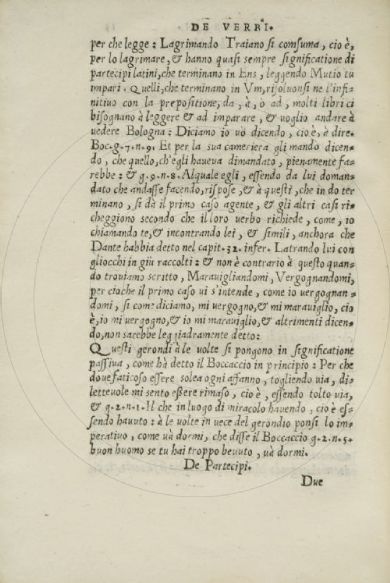 DE VERBI.
per che legge: Lagrimando Traiano si comsuma, cio è,
per lo lagrimare, & hanno quasi sempre significatione di
partecipi latini, che terminano in Ens, leggendo Mutio tu
impari. Quelli, che terminano in Vm, risoluonsi ne l'infi-
nitiuo con la prepositione, da, a, o ad, molti libri ci
bisognano à leggere & ad imparare, & uoglio andare à
uedere Bologna: Diciamo io uò dicendo, cio è, è dire.
Boc.g.7.n.9. Et per la sua cameriera gli mando dicen-
do, che quello, ch'egli haueua dimandato, pienamente fa-
rebbe: & g.9.n.8. Al quale egli, essendo da lui doman-
dato che andasse facendo, rispose, & à questi, che in do ter
minano, si dà il primo caso agente, & gli altri casi ri-
cheggiono secondo che il loro verbo richiede, come, io
chiamando te, & incontrando lei, & simili, anchora che
Dante habbia detto nel capit.32.infer. Latrando lui con
gliocchi in giu raccolti: & non è contrario à questo quan-
do trouiamo scritto, Marauigliandomi, Vergognandomi,
per cioche il primo caso ui s'intende, come io vergognan-
domi, si come diciamo, mi vergogno, & mi marauiglio, cio
è, io mi vergogno, & io mi marauiglio, & altrimenti dicen-
do, non sarebbe leggiadramente detto:
Questi gerondi à le volte si pongono in significatione
passiua, come hà detto il Boccaccio in principio: Per che
doue faticoso essere solea ogni affanno, togliendo uia, di-
letteuole mi sento eßere rimaso, cio è, essendo tolto uia,
& g.2.n.1. Il che in luogo di miracolo hauendo, cio è es-
sendo hauuto: à le volte in uece del gerondio ponsi lo im-
peratiuo, come uà dormi, che disse il Boccaccio g.2.n.5.
buon huomo se tu hai troppo beuuto, uà dormi.
De Partecipi.
Due